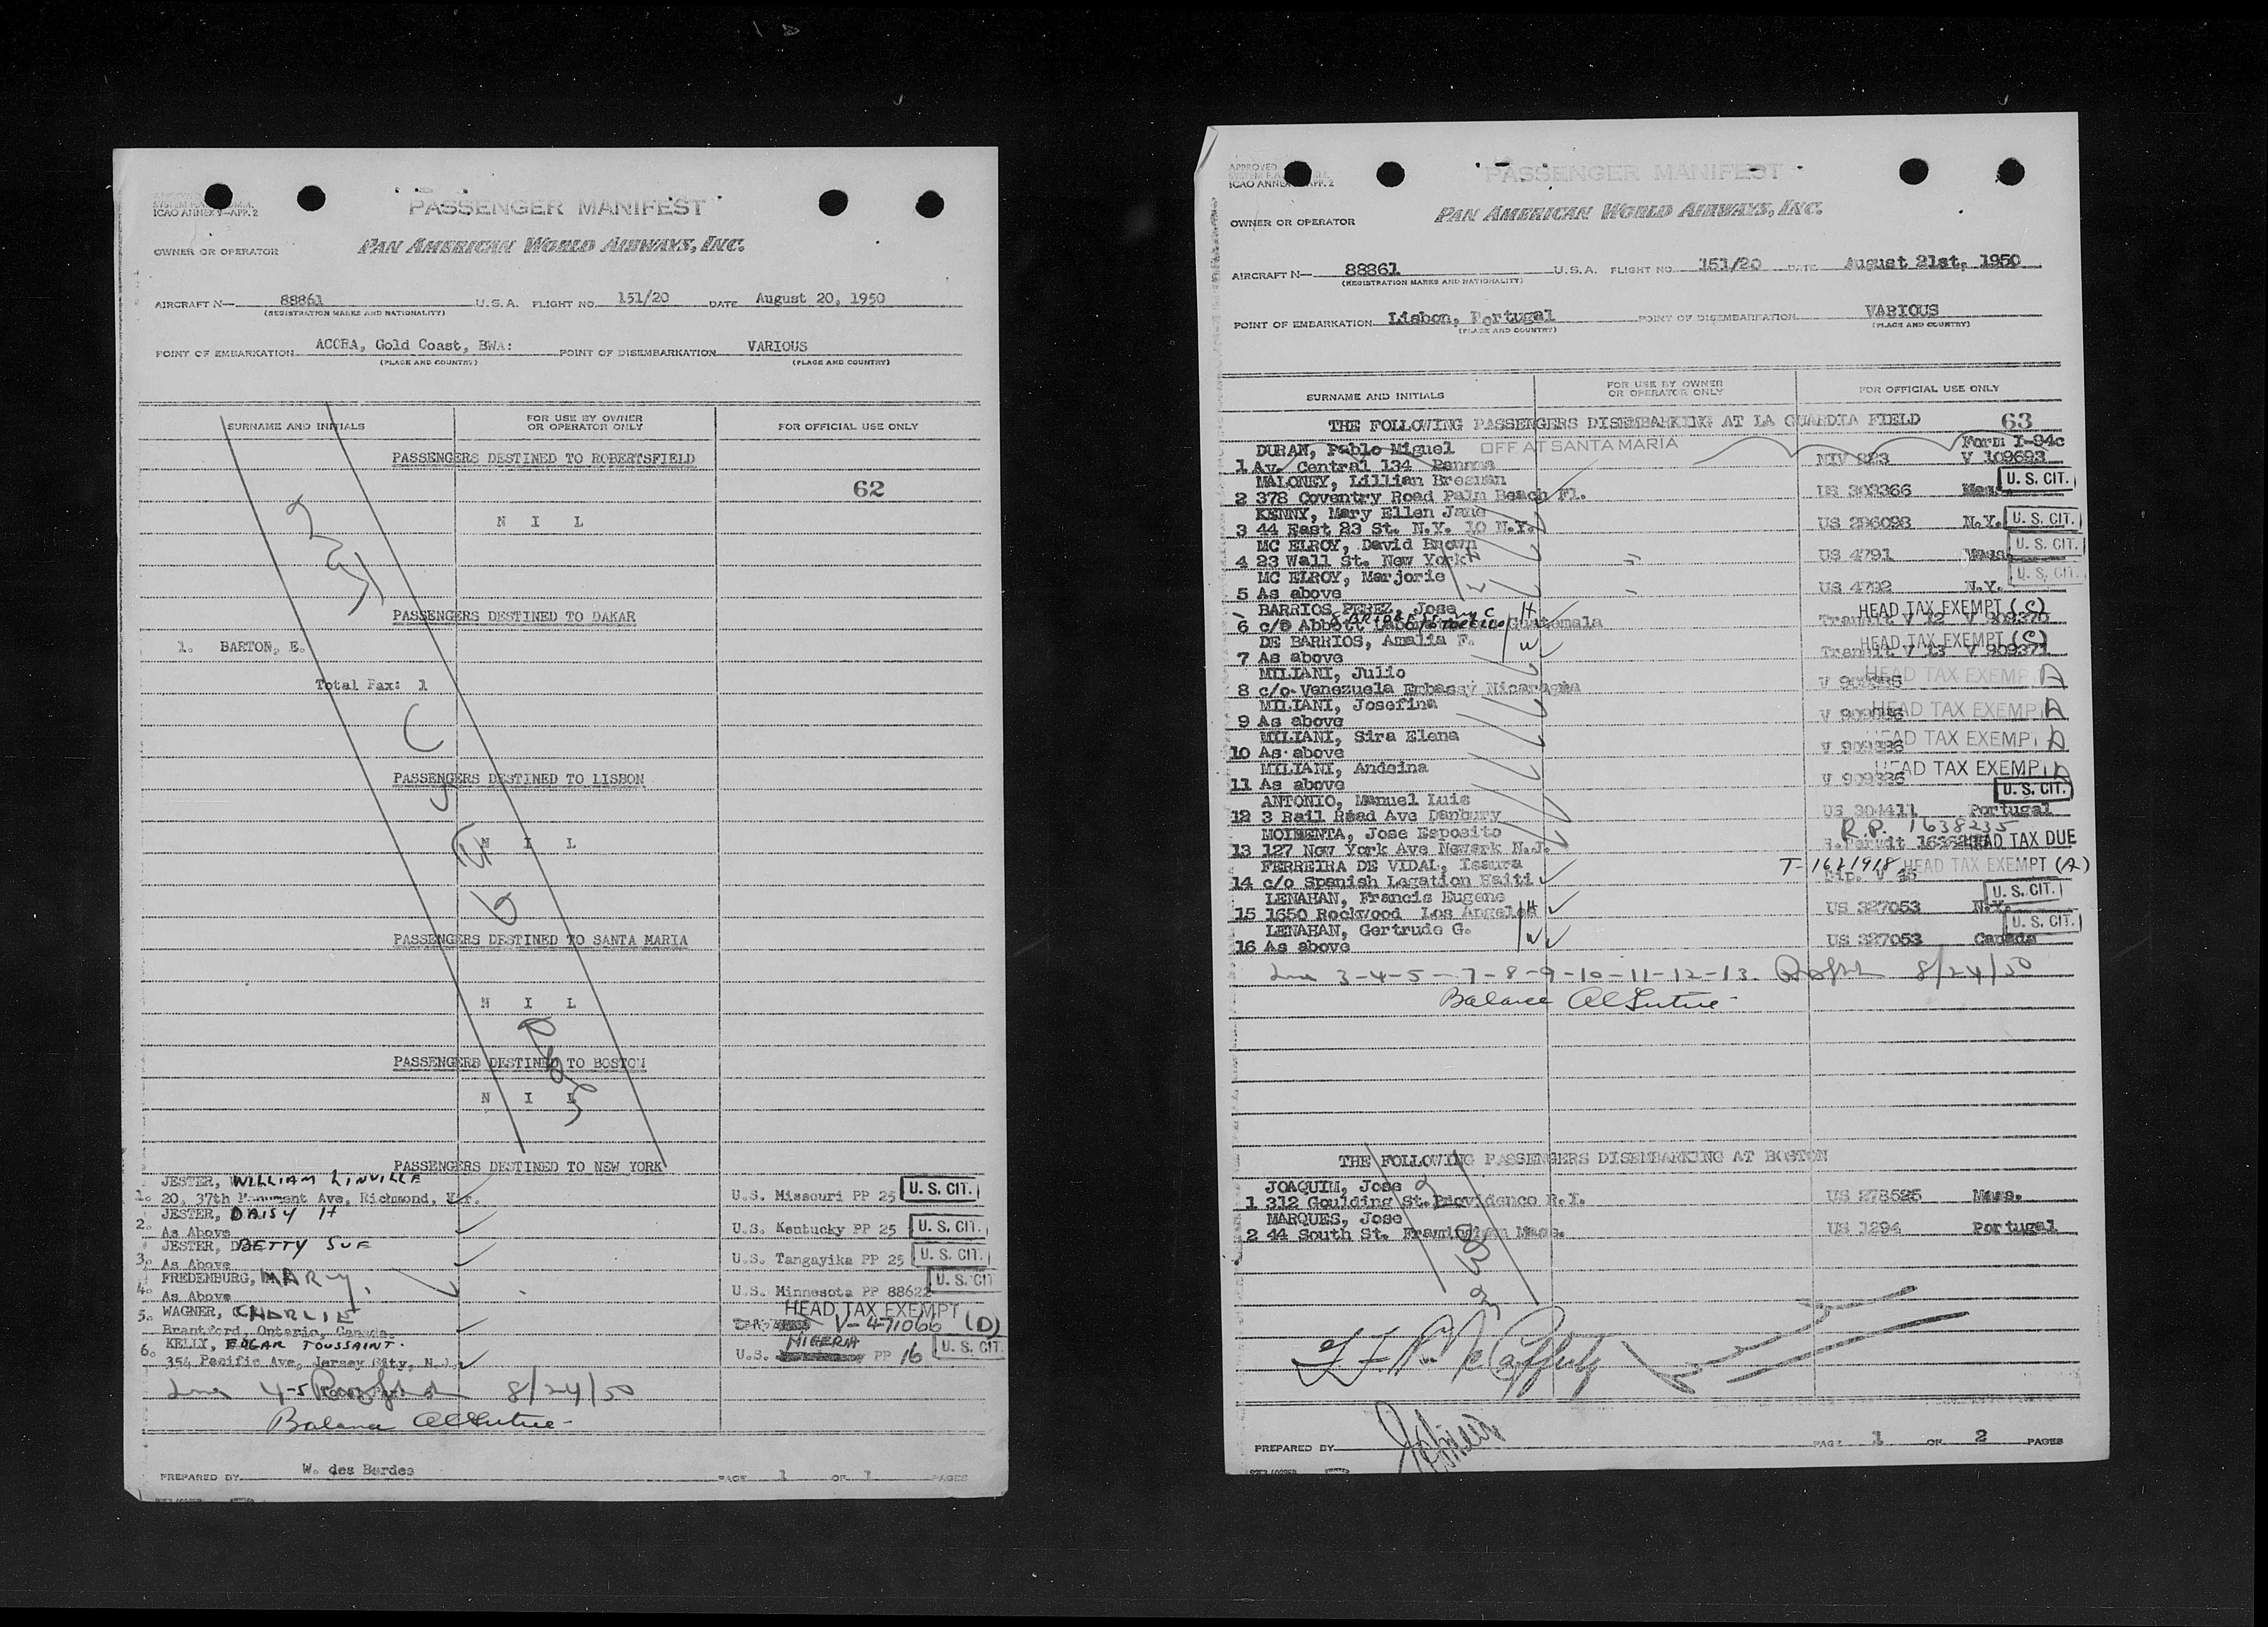 ICAO ANNEX 9—APP. 2
PASSENGER MANIFEST
OWNER OR OPERATOR PAN AMERICAN WORLD AIRWAYS, INC.
AIRCRAFT N— 88861 U.S.A. FLIGHT NO. 151/20 DATE August 20, 1950
(REGISTRATION MARKS AND NATIONALITY)
POINT OF EMBARKATION ACCRA, Gold Coast, BWA: POINT OF DISEMBARKATION VARIOUS
(PLACE AND COUNTRY) (PLACE AND COUNTRY)
SURNAME AND INITIALS FOR USE BY OWNER OR OPERATOR ONLY FOR OFFICIAL USE ONLY
PASSENGERS DESTINED TO ROBERTSFIELD
62
N I L
PASSENGERS DESTINED TO DAKAR
1. BARTON, E.
Total Pax: 1
PASSENGERS DESTINED TO LISBON
N I L
PASSENGERS DESTINED TO SANTA MARIA
N I L
PASSENGERS DESTINED TO BOSTON
N I L
PASSENGERS DESTINED TO NEW YORK
JESTER, WILLIAM LINVILLE
1. 20, 37th Monument Ave, Richmond, U.S. Missouri PP 25 U. S. CIT.
JESTER, DAISY H
2. As Above U.S. Kentucky PP 25 U. S. CIT.
JESTER, BETTY SUE
3. As Above U.S. Tangayika PP 25 U. S. CIT.
FREDENBURG, MARY.
4. As Above U.S. Minnesota PP 88622 U. S. CIT
5. WAGNER, CHARLIE HEAD TAX EXEMPT
Brantford, Ontario, Canada. V-471066 (D)
6. KELLY, EDGAR TOUSSAINT. NIGERIA
354 Pacific Ave, Jersey City, N.J. U.S. PP 16 U. S. CIT.
4-5 8/24/50
Balance
PREPARED BY W. des Bordes PAGE 1 OF 1 PAGES
APPROVED
ICAO ANNEX 9—APP. 2
PASSENGER MANIFEST
OWNER OR OPERATOR PAN AMERICAN WORLD AIRWAYS, INC.
AIRCRAFT N— 88861 U.S.A. FLIGHT NO. 151/20 DATE August 21st, 1950
(REGISTRATION MARKS AND NATIONALITY)
POINT OF EMBARKATION Lisbon, Portugal POINT OF DISEMBARKATION VARIOUS
(PLACE AND COUNTRY) (PLACE AND COUNTRY)
SURNAME AND INITIALS FOR USE BY OWNER OR OPERATOR ONLY FOR OFFICIAL USE ONLY
THE FOLLOWING PASSENGERS DISEMBARKING AT LA GUARDIA FIELD 63
DURAN, Pablo Miguel OFF AT SANTA MARIA Form I-94c
1 Av. Central 134 Panama NIV 823 V 109693
MALONEY, Lillian Bresnan
2 378 Coventry Road Palm Beach Fl. US 309366 Mas. U. S. CIT.
KENNY, Mary Ellen Jane
3 44 East 23 St. N.Y. 10 N.Y. US 296098 N.Y. U. S. CIT.
MC ELROY, David Brown
4 23 Wall St. New York US 4791 Mass U. S. CIT.
MC ELROY, Marjorie
5 As above US 4792 N.Y. U. S. CIT.
BARRIOS PEREZ, Jose H HEAD TAX EXEMPT (C)
6 c/o Abbott Guatemala Transit V 12 V 909370
DE BARRIOS, Amalia F. W HEAD TAX EXEMPT (C)
7 As above Transit V 13 V 909371
MILIANI, Julio
8 c/o Venezuela Embassy Nicaragua HEAD TAX EXEMP. A
MILIANI, Josefina
9 As above HEAD TAX EXEMP A
MILIANI, Sira Elena
10 As above V 909336 HEAD TAX EXEMP A
MILIANI, Andeina
11 As above V 909336 HEAD TAX EXEMP A
ANTONIO, Manuel Luis U. S. CIT.
12 3 Rail Road Ave Danbury US 304411 Portugal
MOIMENTA, Jose Esposito R.P. 1638235
13 127 New York Ave Newark N.J. HEAD TAX DUE
FERREIRA DE VIDAL, Isaura T-1621918 HEAD TAX EXEMPT (A)
14 c/o Spanish Legation Haiti Dip. V 45
LENAHAN, Francis Eugene U. S. CIT.
15 1650 Rockwood Los Angeles H US 327053 N.Y.
LENAHAN, Gertrude G. U. S. CIT.
16 As above W US 327053 Canada
3-4-5-7-8-9-10-11-12-13 8/24/50
Balance
THE FOLLOWING PASSENGERS DISEMBARKING AT BOSTON
JOAQUIM, Jose
1 312 Goulding St. Providence R.I. US 278525 Mass.
MARQUES, Jose
2 44 South St. Framingham Mass. US 1294 Portugal
PREPARED BY PAGE 1 OF 2 PAGES